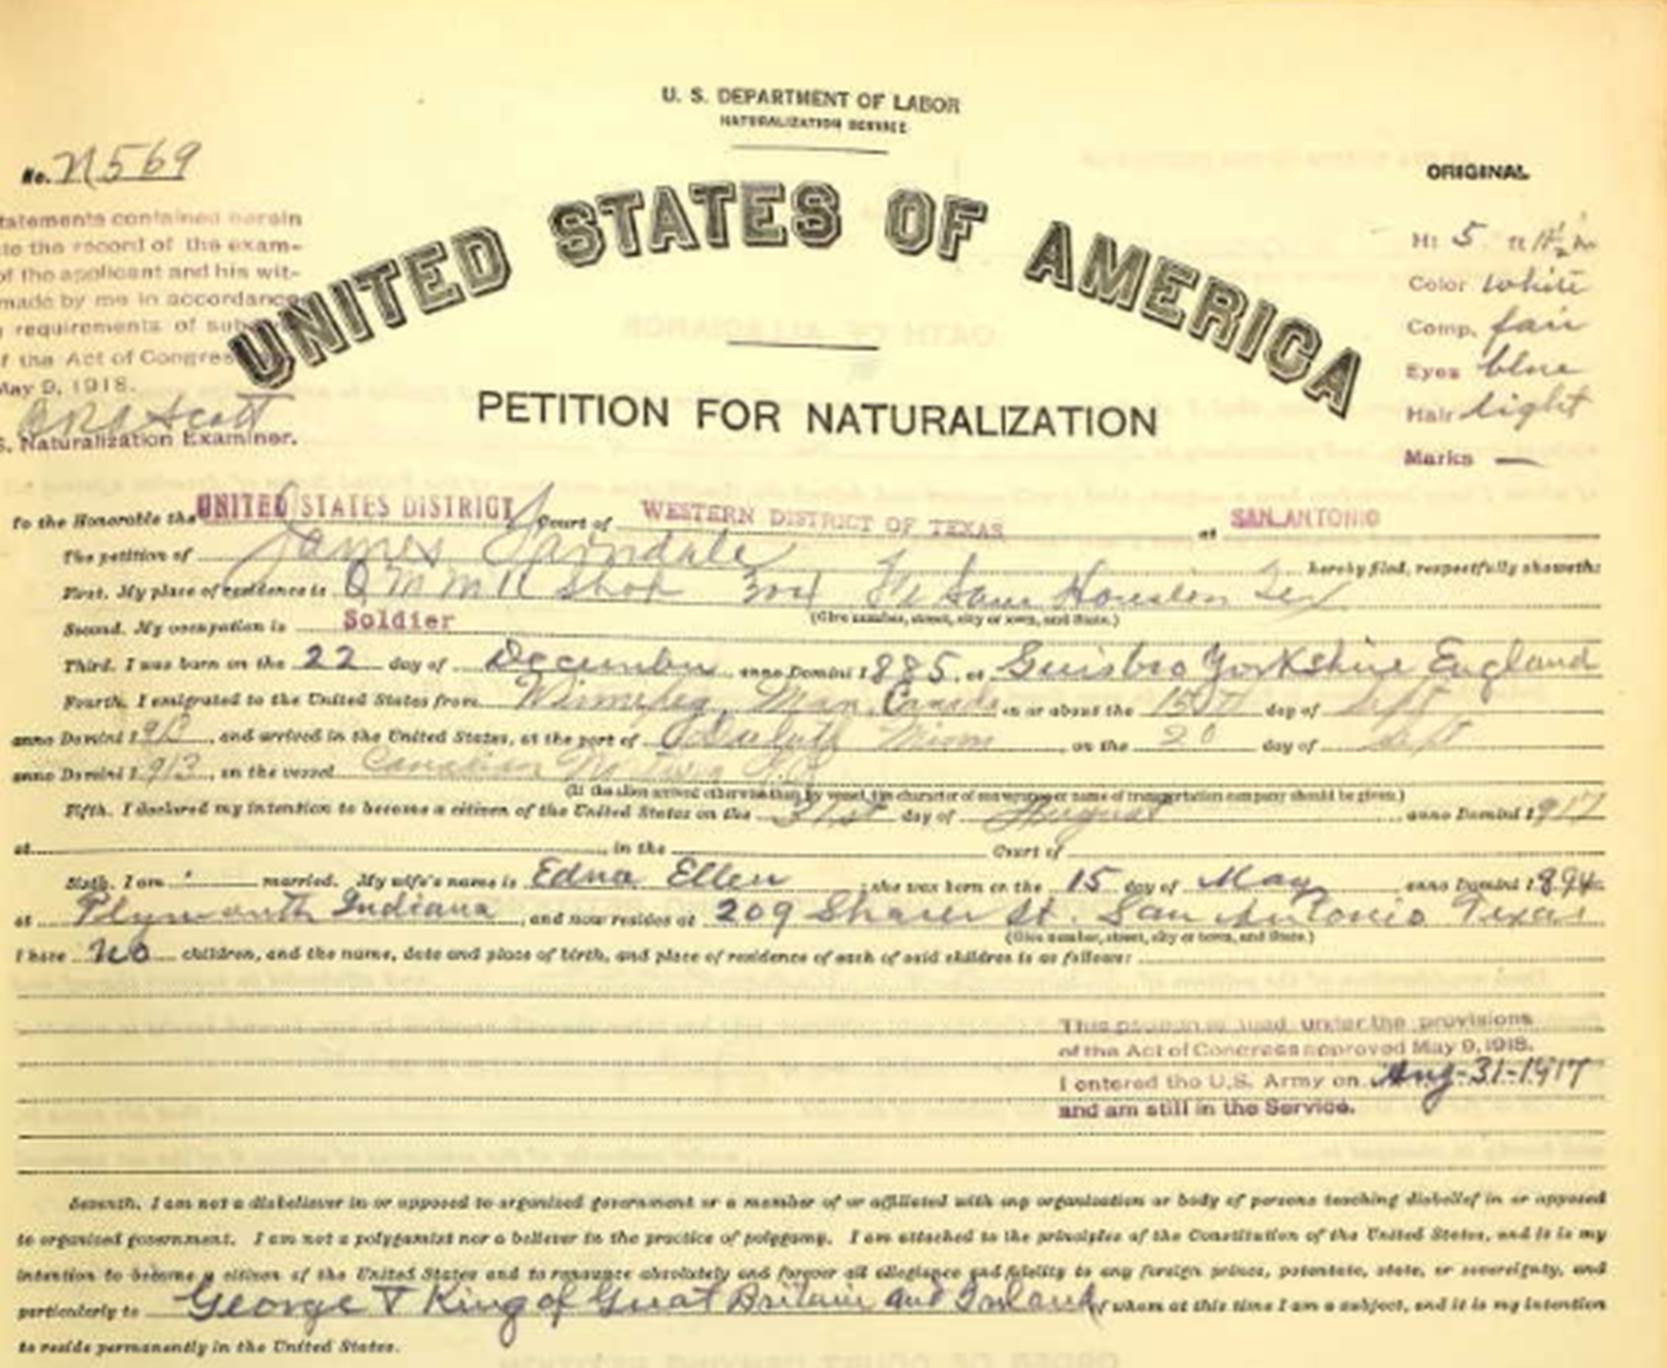 U. S. DEPARTMENT OF LABOR
NATURALIZATION SERVICE
No. N569
ORIGINAL
UNITED STATES OF AMERICA
PETITION FOR NATURALIZATION
tatements contained herein
te the record of the exam-
of the applicant and his wit-
made by me in accordance
requirements of
f the Act of Congress
May 9, 1918.
Scott
S. Naturalization Examiner.
Ht 5 ft 11½ in
Color white
Comp. fair
Eyes blue
Hair light
Marks —
To the Honorable the UNITED STATES DISTRICT Court of WESTERN DISTRICT OF TEXAS at SAN ANTONIO
The petition of James hereby filed, respectfully showeth:
First. My place of residence is Q M M Shop 304 Ft Sam Houston Tex
(Give number, street, city or town, and State.)
Second. My occupation is Soldier
Third. I was born on the 22 day of December, anno Domini 1885, at Guisbro Yorkshire England
Fourth. I emigrated to the United States from Winnipeg, Man. Canada on or about the 15th day of Sept
anno Domini 1913, and arrived in the United States, at the port of Duluth Minn, on the 20 day of Sept
anno Domini 1913, on the vessel Canadian Northern
(If the alien arrived otherwise than by vessel, the character of conveyance or name of transportation company should be given.)
Fifth. I declared my intention to become a citizen of the United States on the 31st day of August, anno Domini 1917
at , in the Court of
Sixth. I am married. My wife's name is Edna Ellen; she was born on the 15 day of May, anno Domini 1894
at Plymouth Indiana, and now resides at 209 St. San Antonio Texas
(Give number, street, city or town, and State.)
I have no children, and the name, date and place of birth, and place of residence of each of said children is as follows:
This petition is filed under the provisions
of the Act of Congress approved May 9, 1918.
I entered the U.S. Army on Aug-31-1917
and am still in the Service.
Seventh. I am not a disbeliever in or opposed to organized government or a member of or affiliated with any organization or body of persons teaching disbelief in or opposed
to organized government. I am not a polygamist nor a believer in the practice of polygamy. I am attached to the principles of the Constitution of the United States, and it is my
intention to become a citizen of the United States and to renounce absolutely and forever all allegiance and fidelity to any foreign prince, potentate, state, or sovereignty, and
particularly to George V King of Great Britain and Ireland of whom at this time I am a subject, and it is my intention
to reside permanently in the United States.